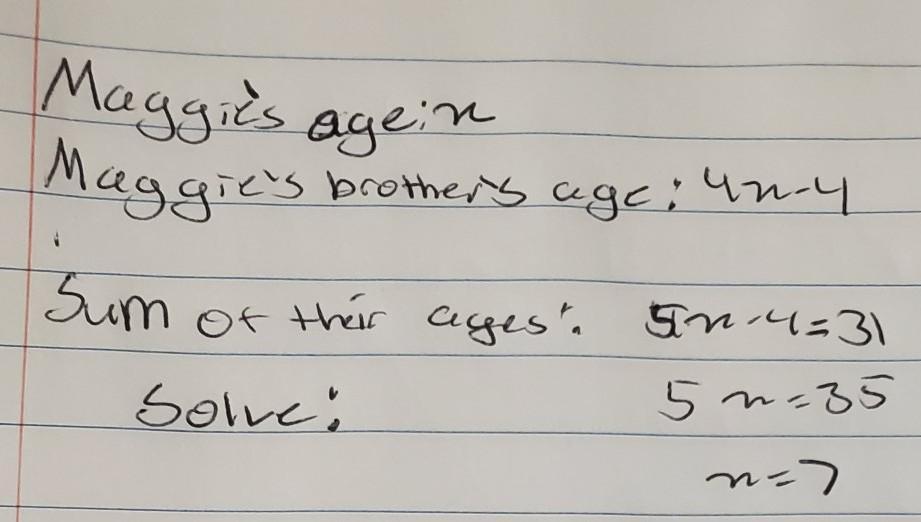 Maggie's age: n
Maggie's brother's age: 4n-4
Sum of their ages: 5n-4=31
Solve: 5n=35
n=7